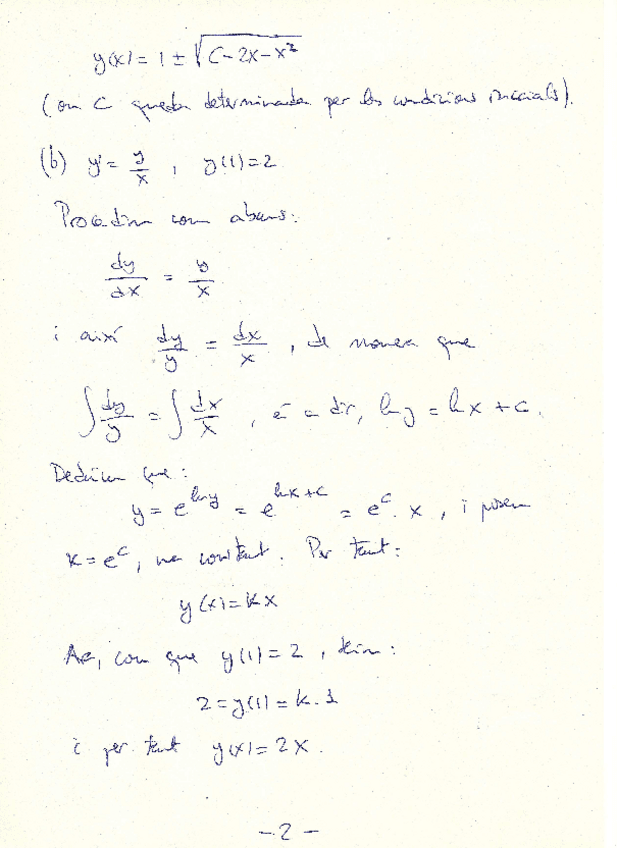 y(x) = 1 ± √(C - 2x - x²)
(on C queda determinada per les condicions inicials).
(b) y' = y/x , y(1) = 2
Procedim com abans:
dy/dx = y/x
i així dy/y = dx/x , de manera que
∫ dy/y = ∫ dx/x , és a dir, ln y = ln x + c.
Deduïm que:
y = e^{ln y} = e^{ln x + c} = e^c · x , i posem
K = e^c, una constant. Per tant:
y(x) = K x
Ara, com que y(1) = 2 , tenim:
2 = y(1) = K · 1
i per tant y(x) = 2x.
- 2 -